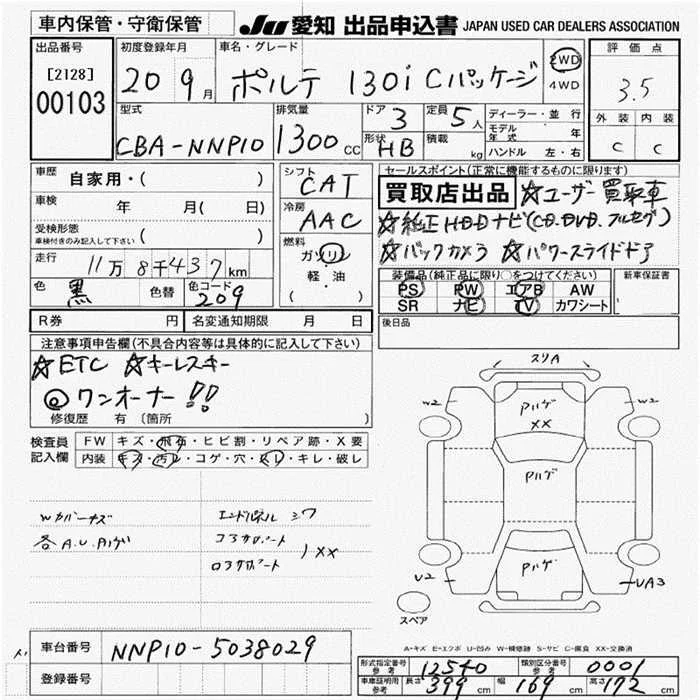 車内保管・守衛保管
JU 愛知 出品申込書 JAPAN USED CAR DEALERS ASSOCIATION
出品番号
[2128]
00103
初度登録年月
20 9月
車名・グレード
ポルテ 130i Cパッケージ
2WD
4WD
評価点
3.5
外装 内装
C C
型式
CBA-NNP10
排気量
1300cc
ドア 3
形状 HB
定員 5人
積載 kg
ディーラー・並行
モデル年式 年
ハンドル 左・右
車歴 自家用・( )
車検 年 月( 日)
受検形態
車検付きのみ記入して下さい ( )
走行 11万8千437km
色 黒 色替 色コード 209
シフト CAT
冷房 AAC
燃料
ガソリン
軽・油
( )
セールスポイント(正常に機能するものに限ります)
買取店出品 ☆ユーザー買取車
☆純正HDDナビ(CD.DVD.フルセグ)
☆バックカメラ ☆パワースライドドア
装備品(純正品に限り○をつけてください)
PS PW エアB AW
SR ナビ TV カワシート
新車保証書
後日品
R券 円 名変通知期限 月 日
注意事項申告欄(不具合内容等は具体的に記入して下さい)
☆ETC ☆キーレスキー
◎ワンオーナー!!
修復歴 有 〔箇所 〕
検査員記入欄
FW キズ・飛石・ヒビ割・リペア跡・X要
内装 キズ・汚レ・コゲ・穴・スレ・キレ・破レ
Wカバーキズ
各A.U.Pハゲ
エンドパネル シワ
コアサポート
ロアサポート
XX
スリA
W2 W2
Pハゲ
XX
Pハゲ
Pハゲ
U2 UA3
スペア
A-キズ E-エクボ U-凹み W-補修跡 S-サビ C-腐食 XX-交換済
車台番号 NNP10-5038029
登録番号
形式指定番号参考 12540 類別区分番号参考 0001
車庫証明用参考 長さ 399cm 幅 169cm 高さ 172cm